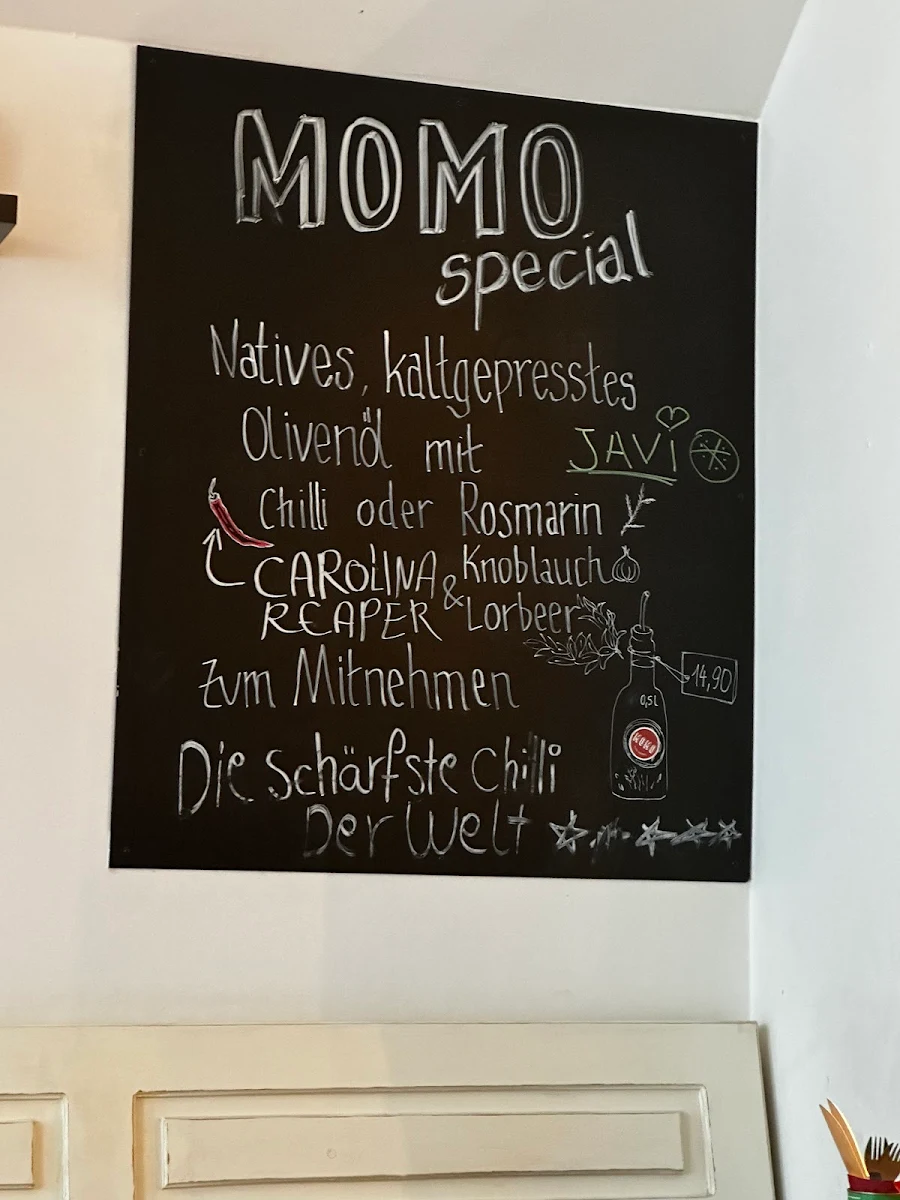 MOMO
special
Natives, kaltgepresstes
Olivenöl mit
JAVi
Chilli oder Rosmarin
CAROLINA & Knoblauch
REAPER Lorbeer
zum Mitnehmen
14,90
0,5L
MOMO
Die schärfste Chilli
Der Welt